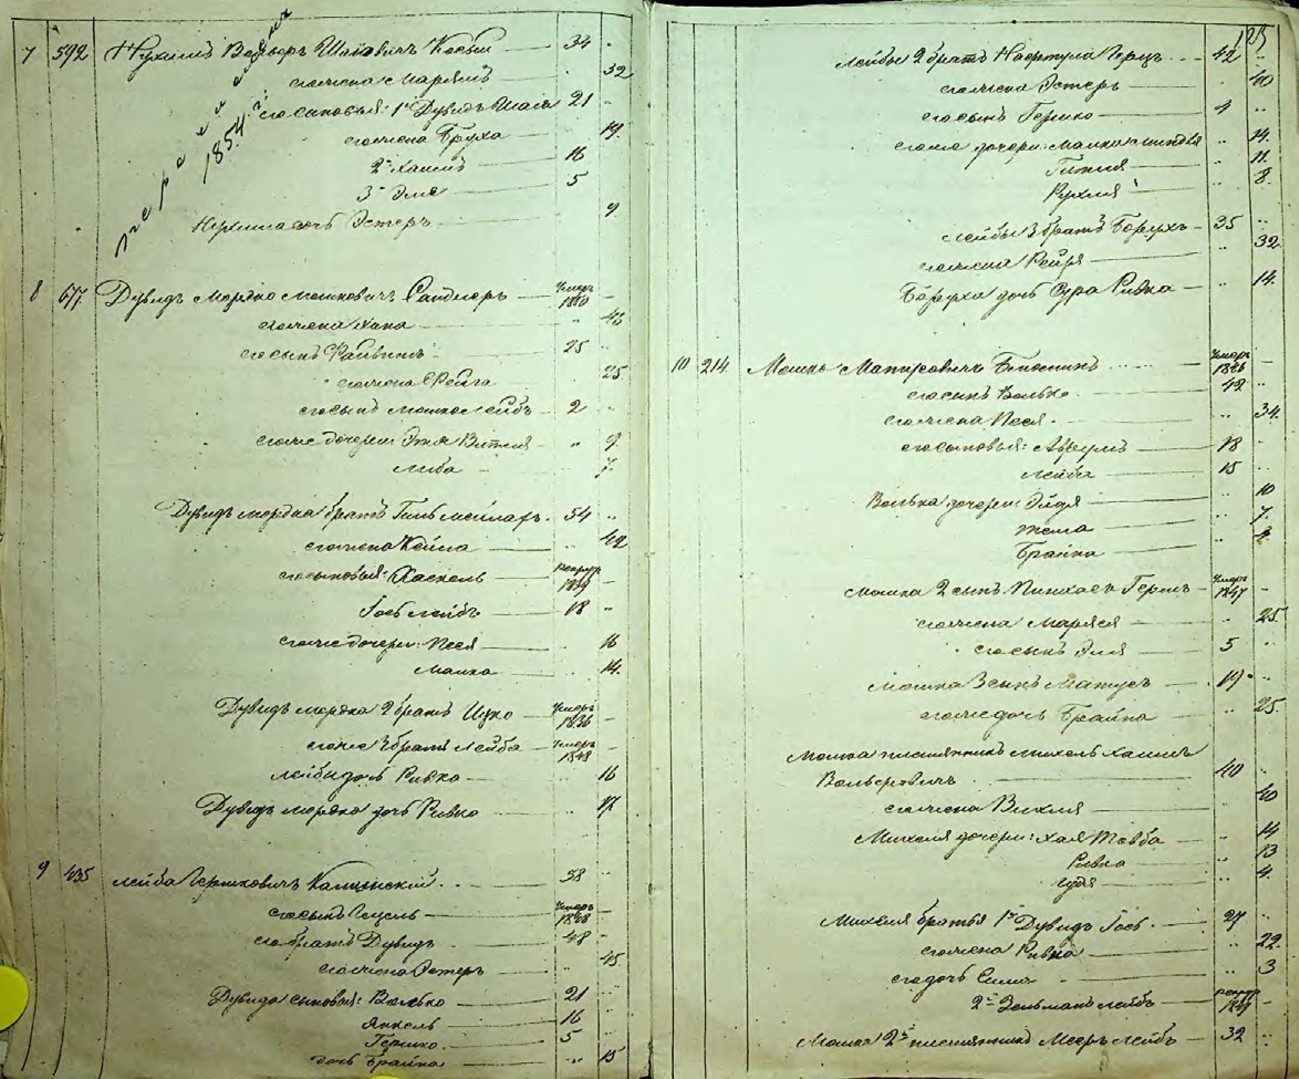 7 592 Нухимъ Вольеръ Шаевичъ 34
его жена Марьямъ 32
переселенъ
1854 г.
его сыновья: 1й Дувидъ Шая 21
его жена Бруха 19
2й Хаимъ 16
3й Эле 5
Нухима дочь Эстеръ 9
8 677 Дувидъ Мордко Мошковичъ Сандлеръ умеръ 1850
его жена Хана 46
его сынъ Файвишъ 25
его жена Фейга 25
его сынъ Мошко Лейбъ 2
его же дочери: Этя Витля 9
Либа 7
Дувидъ Мордка братъ Гиль Мейлахъ 54
его жена Кейла 42
его сыновья: Хаскель рекрут 1839
Іось Лейбъ 18
его же дочери: Песя 16
Малка 14
Дувидъ Мордка 2 братъ Ицко умеръ 1836
его же 3 братъ Лейба умеръ 1848
Лейбы дочь Ривка 16
Дувидъ Мордка дочь Ривка 17
9 435 Лейба Гершковичъ 58
его сынъ Гецель умеръ 1848
его братъ Дувидъ 48
его жена Эстеръ 45
Дувида сыновья: Волько 21
Янкель 16
Гершко 5
дочь Брайна 15
125
Лейбы 2 братъ Нафтула Герцъ 42
его жена Эстеръ 40
его сынъ Гершко 4
его же дочери: Малка Миндля 14
Гитля 11
Рухля 8
Лейбы 3 братъ Борухъ 35
его жена Фейга 32
Боруха дочь Сура Ривка 14
10 214 Мошко умеръ 1836
его сынъ Волько 42
его жена Песя 34
его сыновья: Аврумъ 18
Лейба 15
Волька дочери: Эйдя 10
7
Брайна 2
Мошка 2 сынъ Пинхасъ Гершъ умеръ 1847
его жена Маряся 25
его сынъ Эля 5
Мошка 3 сынъ Матусъ 19
его же дочь Брайна 25
Мошка племянникъ Михель Хаимъ
Вольфовичъ 40
его жена Вихля 40
Михеля дочери: Хая Товба 14
Ривка 13
4
Михеля братья 1й Дувидъ Іось 27
его жена Ривка 22
его дочь Сима 3
2й Зельманъ Лейбъ рекрут 1849
Мошка 2й племянникъ Мееръ Лейбъ 32